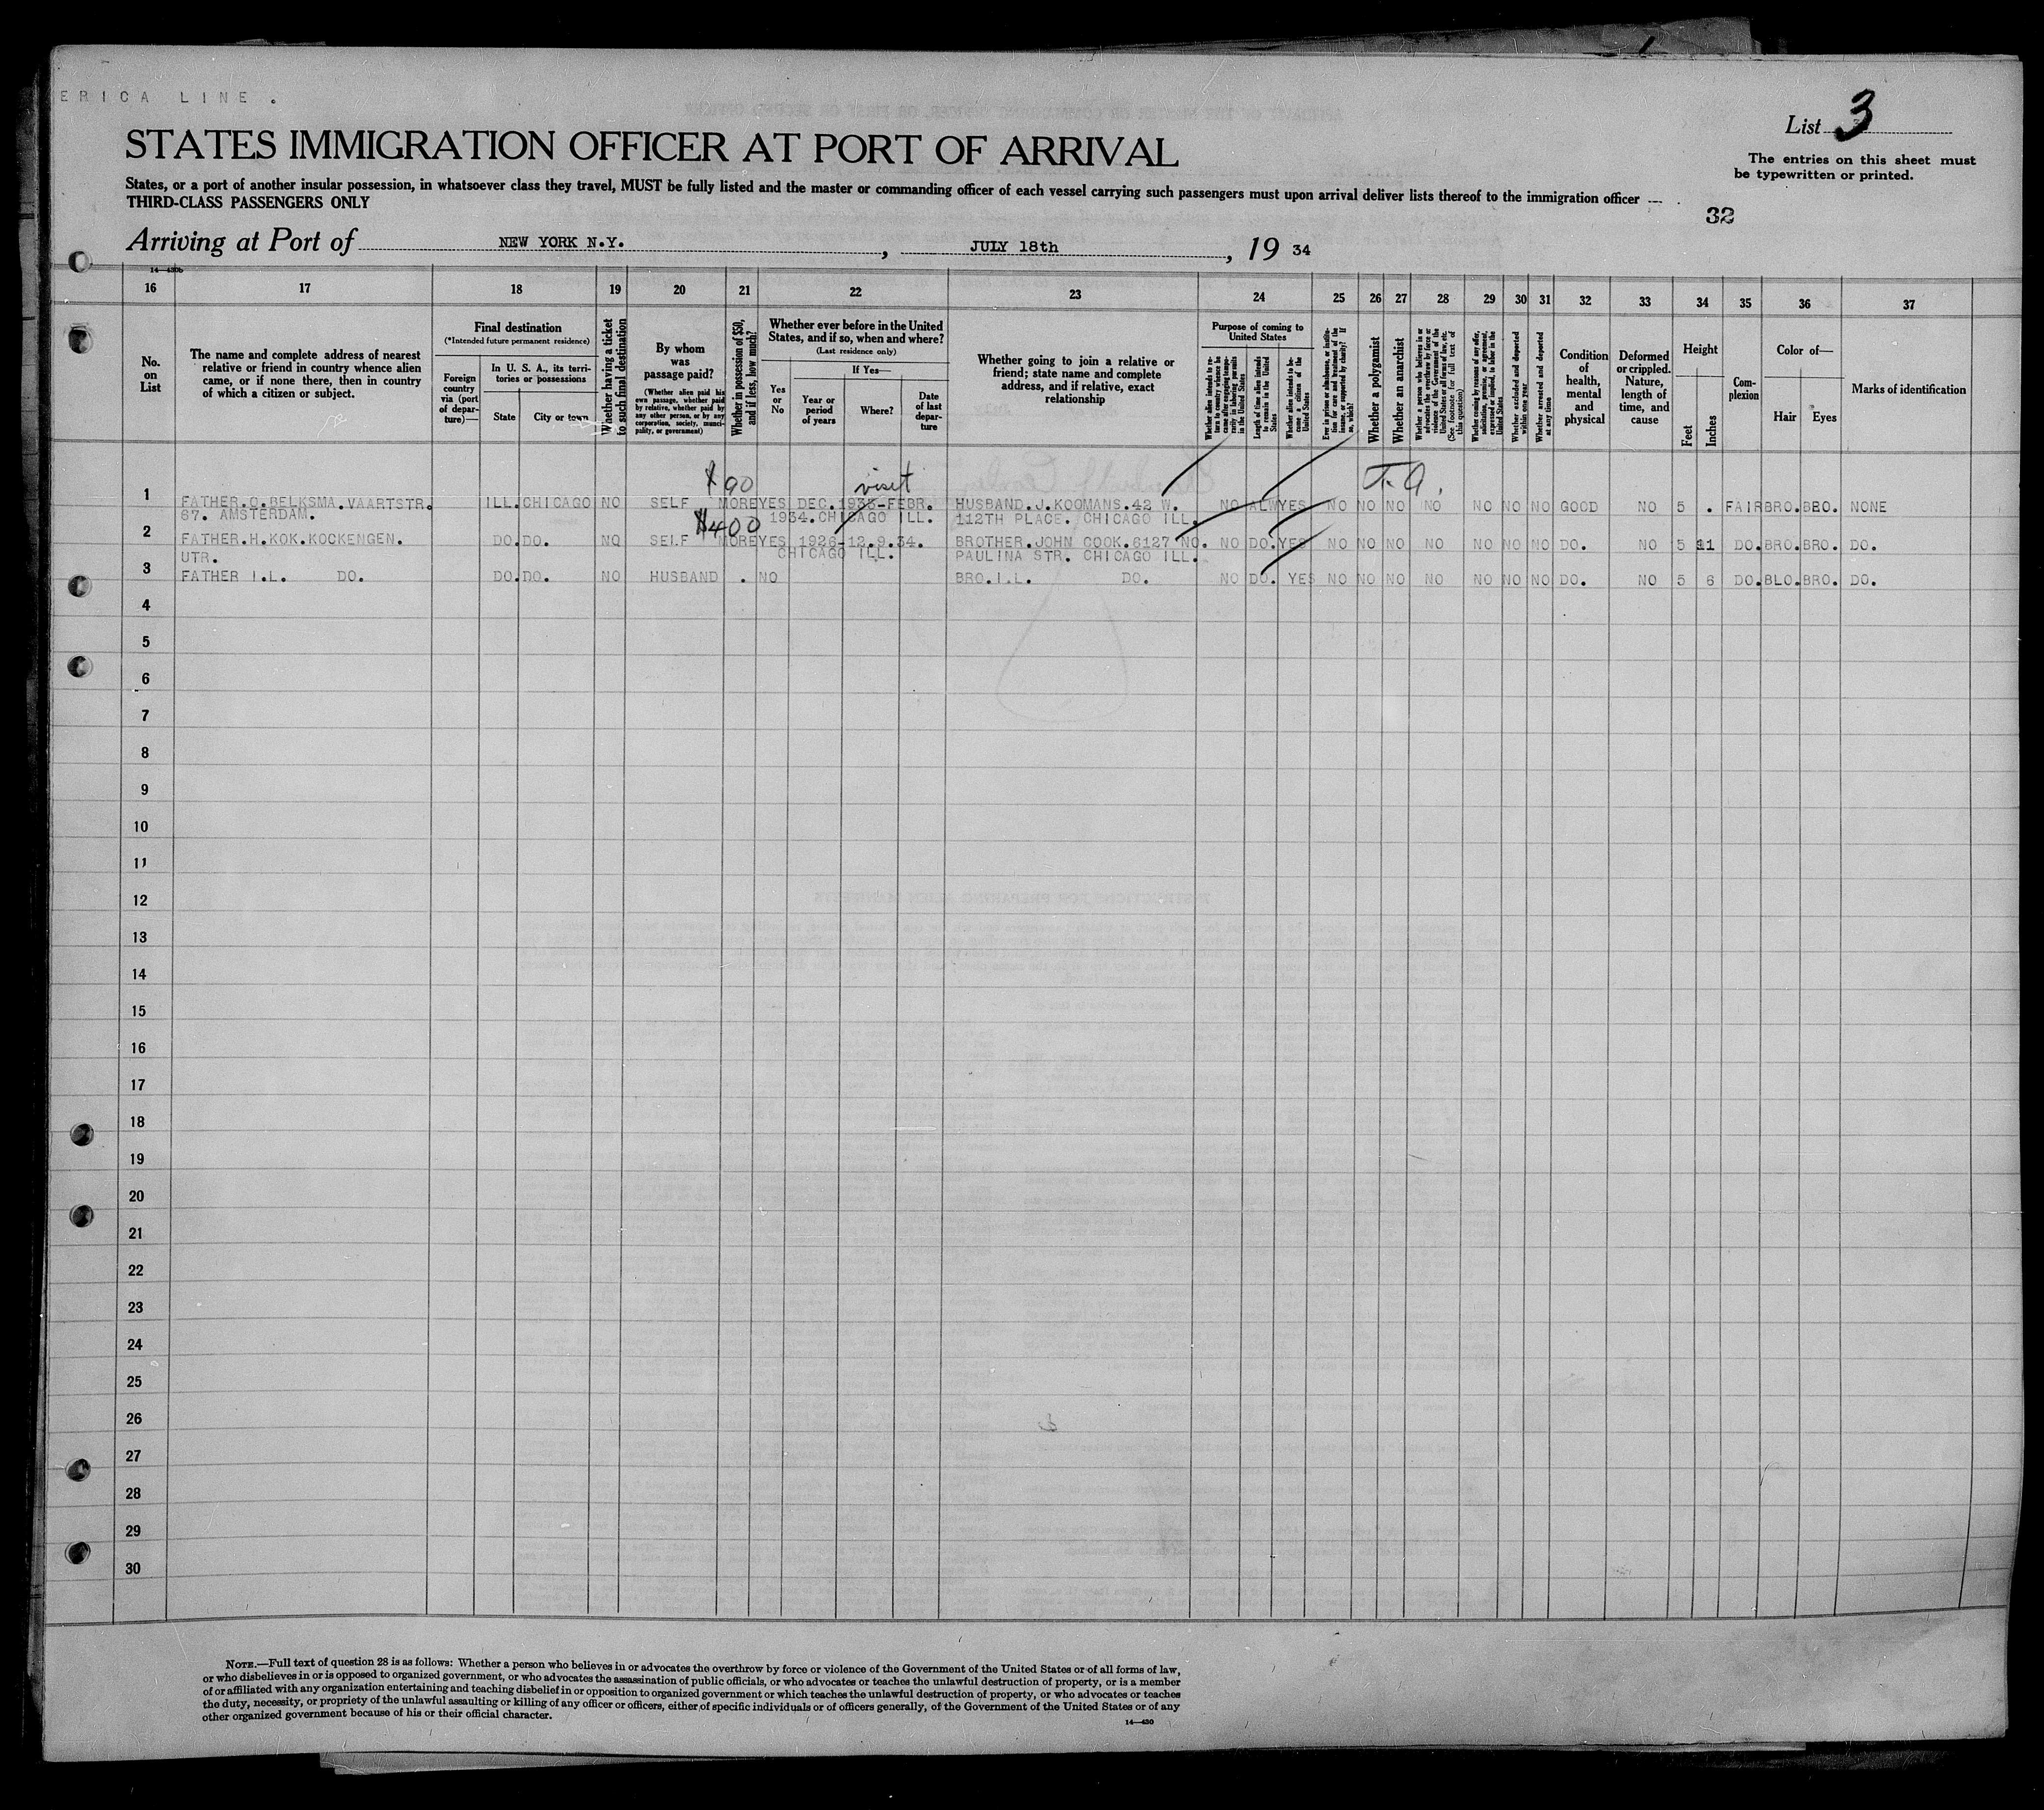 ERICA LINE.
List 3
STATES IMMIGRATION OFFICER AT PORT OF ARRIVAL
The entries on this sheet must
be typewritten or printed.
States, or a port of another insular possession, in whatsoever class they travel, MUST be fully listed and the master or commanding officer of each vessel carrying such passengers must upon arrival deliver lists thereof to the immigration officer
THIRD-CLASS PASSENGERS ONLY
32
Arriving at Port of NEW YORK N.Y. , JULY 18th , 19 34
14—430b
16 17 18 19 20 21 22 23 24 25 26 27 28 29 30 31 32 33 34 35 36 37
No. on List
The name and complete address of nearest relative or friend in country whence alien came, or if none there, then in country of which a citizen or subject.
Final destination
(*Intended future permanent residence)
Foreign country via (port of departure)—
In U. S. A., its territories or possessions
State
City or town
Whether having a ticket to such final destination
By whom was passage paid?
(Whether alien paid his own passage, whether paid by relative, whether paid by any other person, or by any corporation, society, municipality, or government)
Whether in possession of $50, and if less, how much?
Whether ever before in the United States, and if so, when and where?
(Last residence only)
Yes or No
If Yes—
Year or period of years
Where?
Date of last departure
Whether going to join a relative or friend; state name and complete address, and if relative, exact relationship
Purpose of coming to United States
Whether alien intends to return to country whence he came after engaging temporarily in laboring pursuits in the United States
Length of time alien intends to remain in the United States
Whether alien intends to become a citizen of the United States
Ever in prison or almshouse, or institution for care and treatment of the insane, or supported by charity? If so, which?
Whether a polygamist
Whether an anarchist
Whether a person who believes in or advocates the overthrow by force or violence of the Government of the United States or all forms of law, etc. (See footnote for full text of this question)
Whether coming by reason of any offer, solicitation, promise, or agreement, expressed or implied, to labor in the United States
Whether excluded and deported within one year
Whether arrested and deported at any time
Condition of health, mental and physical
Deformed or crippled. Nature, length of time, and cause
Height
Feet
Inches
Complexion
Color of—
Hair
Eyes
Marks of identification
$90 visit T.A.
1 FATHER.G.BELKSMA.VAARTSTR. ILL. CHICAGO NO SELF MORE YES DEC.1933-FEBR. HUSBAND.J.KOOMANS.42 W. NO ALW YES NO NO NO NO NO NO NO GOOD NO 5 . FAIR BRO. BRO. NONE
67. AMSTERDAM. 1934.CHICAGO ILL. 112TH PLACE. CHICAGO ILL.
$400
2 FATHER.H.KOK.KOCKENGEN. DO. DO. NO SELF MORE YES 1926-12.9.34. BROTHER.JOHN COOK.6127 NO. NO DO. YES NO NO NO NO NO NO NO DO. NO 5 11 DO. BRO. BRO. DO.
UTR. CHICAGO ILL. PAULINA STR. CHICAGO ILL.
3 FATHER I.L. DO. DO. DO. NO HUSBAND . NO BRO.I.L. DO. NO DO. YES NO NO NO NO NO NO NO DO. NO 5 6 DO. BLO. BRO. DO.
4
5
6
7
8
9
10
11
12
13
14
15
16
17
18
19
20
21
22
23
24
25
26
27
28
29
30
NOTE.—Full text of question 28 is as follows: Whether a person who believes in or advocates the overthrow by force or violence of the Government of the United States or of all forms of law,
or who disbelieves in or is opposed to organized government, or who advocates the assassination of public officials, or who advocates or teaches the unlawful destruction of property, or is a member
of or affiliated with any organization entertaining and teaching disbelief in or opposition to organized government or which teaches the unlawful destruction of property, or who advocates or teaches
the duty, necessity, or propriety of the unlawful assaulting or killing of any officer or officers, either of specific individuals or of officers generally, of the Government of the United States or of any
other organized government because of his or their official character.
14—430